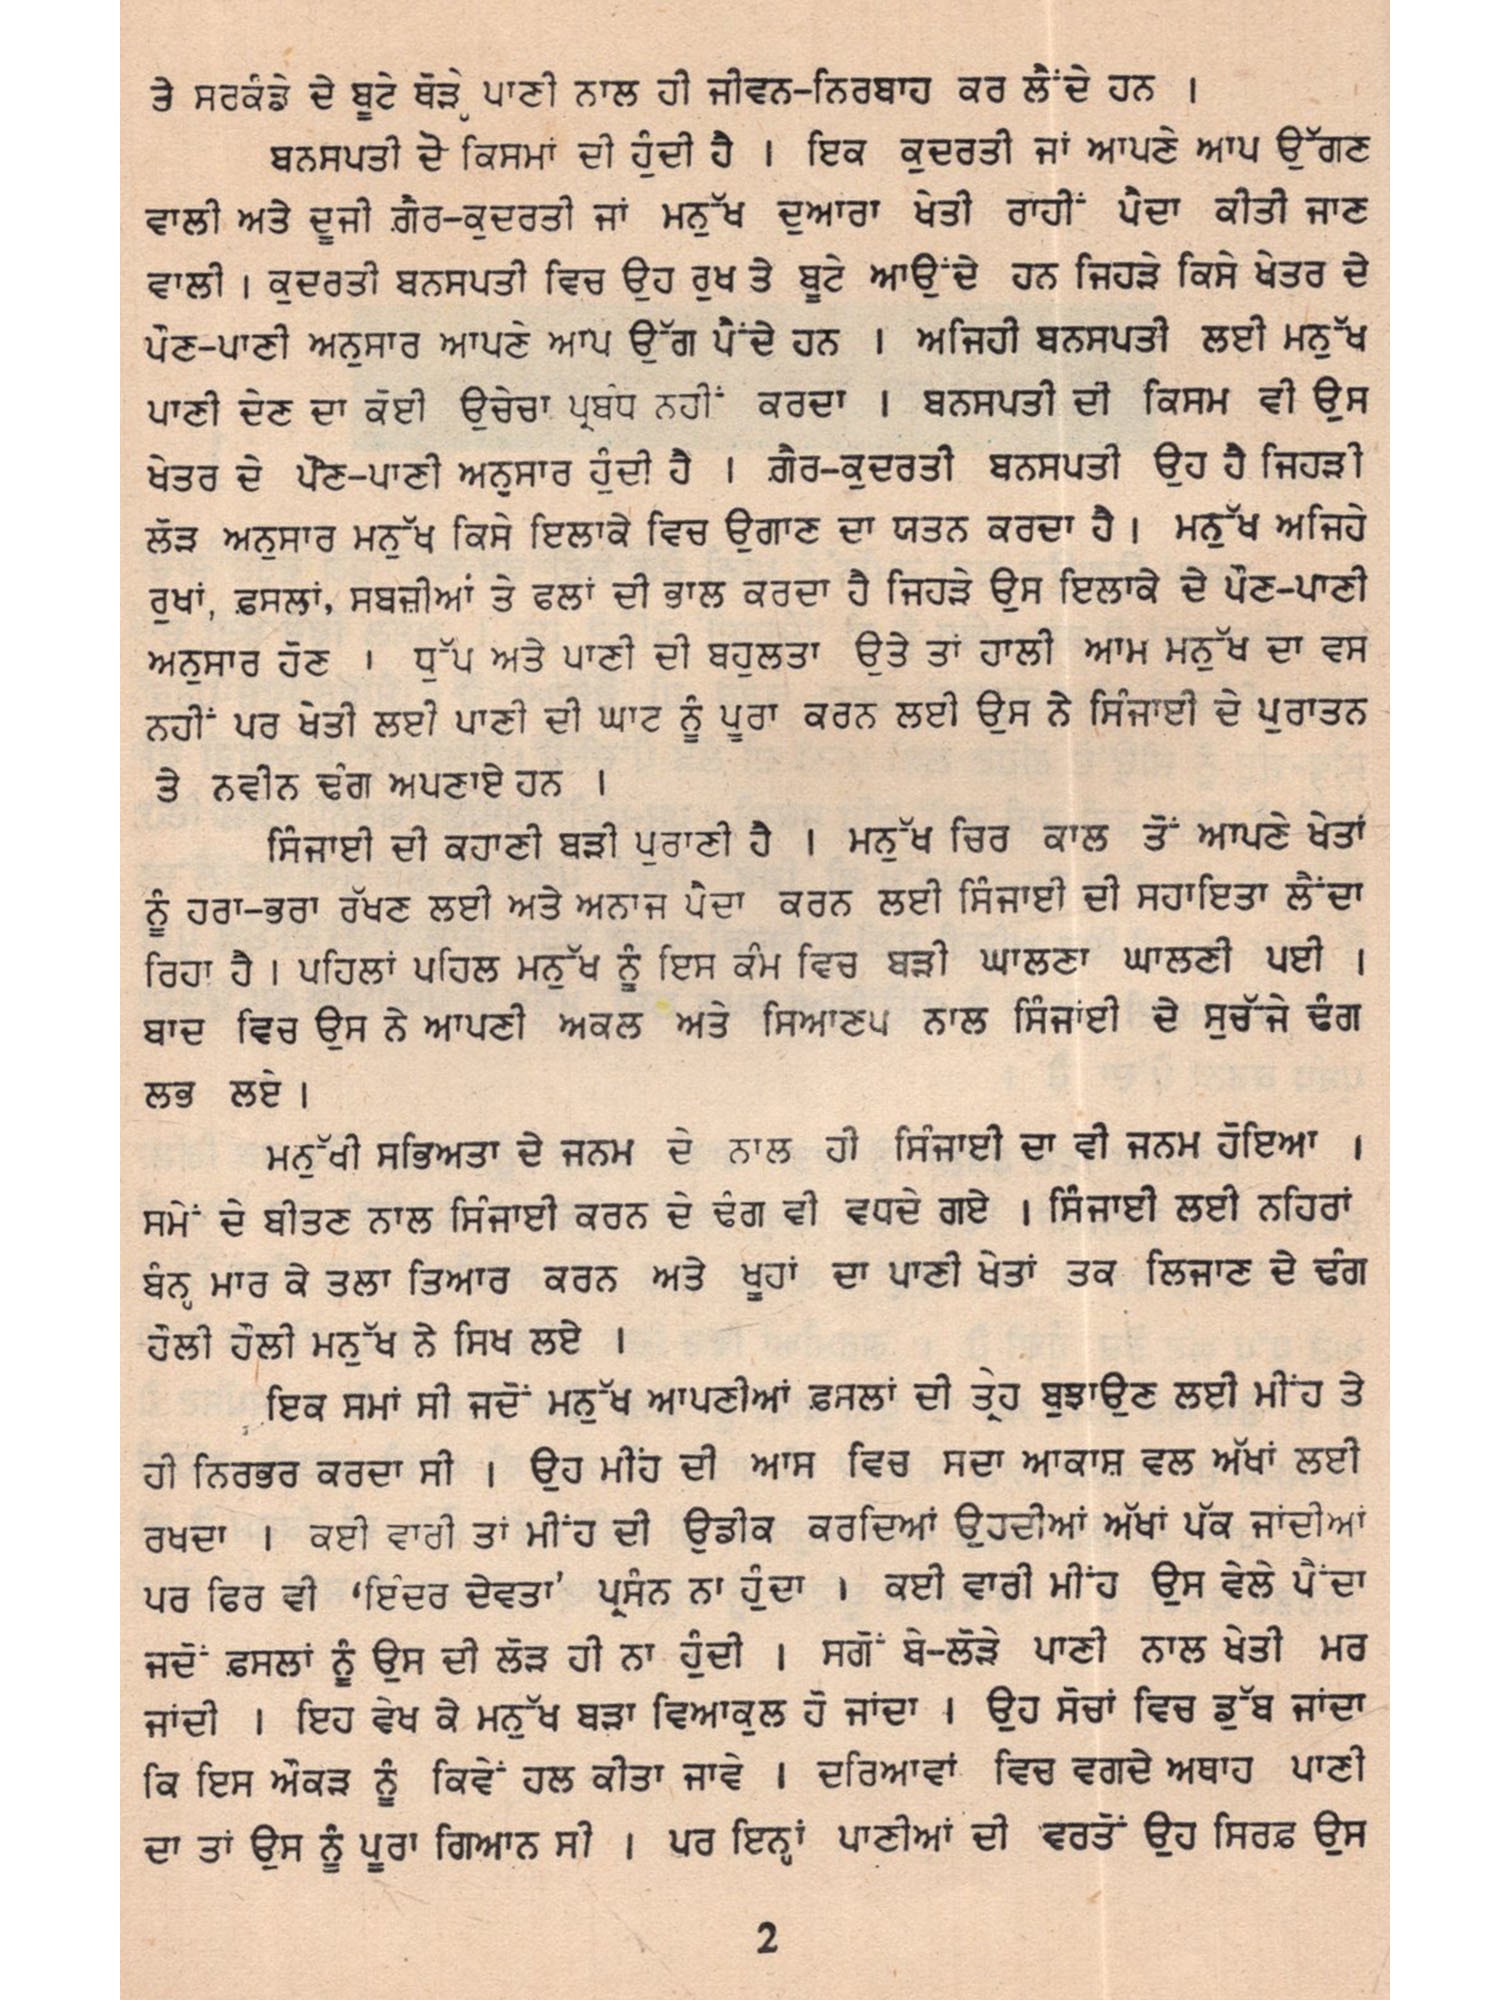 ਤੇ ਸਰਕੰਡੇ ਦੇ ਬੂਟੇ ਥੋੜ੍ਹੇ ਪਾਣੀ ਨਾਲ ਹੀ ਜੀਵਨ-ਨਿਰਬਾਹ ਕਰ ਲੈਂਦੇ ਹਨ ।
ਬਨਸਪਤੀ ਦੋ ਕਿਸਮਾਂ ਦੀ ਹੁੰਦੀ ਹੈ । ਇਕ ਕੁਦਰਤੀ ਜਾਂ ਆਪਣੇ ਆਪ ਉੱਗਣ
ਵਾਲੀ ਅਤੇ ਦੂਜੀ ਗ਼ੈਰ-ਕੁਦਰਤੀ ਜਾਂ ਮਨੁੱਖ ਦੁਆਰਾ ਖੇਤੀ ਰਾਹੀਂ ਪੈਦਾ ਕੀਤੀ ਜਾਣ
ਵਾਲੀ । ਕੁਦਰਤੀ ਬਨਸਪਤੀ ਵਿਚ ਉਹ ਰੁਖ ਤੇ ਬੂਟੇ ਆਉਂਦੇ ਹਨ ਜਿਹੜੇ ਕਿਸੇ ਖੇਤਰ ਦੇ
ਪੌਣ-ਪਾਣੀ ਅਨੁਸਾਰ ਆਪਣੇ ਆਪ ਉੱਗ ਪੈਂਦੇ ਹਨ । ਅਜਿਹੀ ਬਨਸਪਤੀ ਲਈ ਮਨੁੱਖ
ਪਾਣੀ ਦੇਣ ਦਾ ਕੋਈ ਉਚੇਚਾ ਪ੍ਰਬੰਧ ਨਹੀਂ ਕਰਦਾ । ਬਨਸਪਤੀ ਦੀ ਕਿਸਮ ਵੀ ਉਸ
ਖੇਤਰ ਦੇ ਪੌਣ-ਪਾਣੀ ਅਨੁਸਾਰ ਹੁੰਦੀ ਹੈ । ਗ਼ੈਰ-ਕੁਦਰਤੀ ਬਨਸਪਤੀ ਉਹ ਹੈ ਜਿਹੜੀ
ਲੋੜ ਅਨੁਸਾਰ ਮਨੁੱਖ ਕਿਸੇ ਇਲਾਕੇ ਵਿਚ ਉਗਾਣ ਦਾ ਯਤਨ ਕਰਦਾ ਹੈ । ਮਨੁੱਖ ਅਜਿਹੇ
ਰੁਖਾਂ, ਫ਼ਸਲਾਂ, ਸਬਜ਼ੀਆਂ ਤੇ ਫਲਾਂ ਦੀ ਭਾਲ ਕਰਦਾ ਹੈ ਜਿਹੜੇ ਉਸ ਇਲਾਕੇ ਦੇ ਪੌਣ-ਪਾਣੀ
ਅਨੁਸਾਰ ਹੋਣ । ਧੁੱਪ ਅਤੇ ਪਾਣੀ ਦੀ ਬਹੁਲਤਾ ਉਤੇ ਤਾਂ ਹਾਲੀ ਆਮ ਮਨੁੱਖ ਦਾ ਵਸ
ਨਹੀਂ ਪਰ ਖੇਤੀ ਲਈ ਪਾਣੀ ਦੀ ਘਾਟ ਨੂੰ ਪੂਰਾ ਕਰਨ ਲਈ ਉਸ ਨੇ ਸਿੰਜਾਈ ਦੇ ਪੁਰਾਤਨ
ਤੇ ਨਵੀਨ ਢੰਗ ਅਪਣਾਏ ਹਨ ।
ਸਿੰਜਾਈ ਦੀ ਕਹਾਣੀ ਬੜੀ ਪੁਰਾਣੀ ਹੈ । ਮਨੁੱਖ ਚਿਰ ਕਾਲ ਤੋਂ ਆਪਣੇ ਖੇਤਾਂ
ਨੂੰ ਹਰਾ-ਭਰਾ ਰੱਖਣ ਲਈ ਅਤੇ ਅਨਾਜ ਪੈਦਾ ਕਰਨ ਲਈ ਸਿੰਜਾਈ ਦੀ ਸਹਾਇਤਾ ਲੈਂਦਾ
ਰਿਹਾ ਹੈ । ਪਹਿਲਾਂ ਪਹਿਲ ਮਨੁੱਖ ਨੂੰ ਇਸ ਕੰਮ ਵਿਚ ਬੜੀ ਘਾਲਣਾ ਘਾਲਣੀ ਪਈ ।
ਬਾਦ ਵਿਚ ਉਸ ਨੇ ਆਪਣੀ ਅਕਲ ਅਤੇ ਸਿਆਣਪ ਨਾਲ ਸਿੰਜਾਈ ਦੇ ਸੁਚੱਜੇ ਢੰਗ
ਲਭ ਲਏ ।
ਮਨੁੱਖੀ ਸਭਿਅਤਾ ਦੇ ਜਨਮ ਦੇ ਨਾਲ ਹੀ ਸਿੰਜਾਈ ਦਾ ਵੀ ਜਨਮ ਹੋਇਆ ।
ਸਮੇਂ ਦੇ ਬੀਤਣ ਨਾਲ ਸਿੰਜਾਈ ਕਰਨ ਦੇ ਢੰਗ ਵੀ ਵਧਦੇ ਗਏ । ਸਿੰਜਾਈ ਲਈ ਨਹਿਰਾਂ
ਬੰਨ੍ਹ ਮਾਰ ਕੇ ਤਲਾ ਤਿਆਰ ਕਰਨ ਅਤੇ ਖੂਹਾਂ ਦਾ ਪਾਣੀ ਖੇਤਾਂ ਤਕ ਲਿਜਾਣ ਦੇ ਢੰਗ
ਹੌਲੀ ਹੌਲੀ ਮਨੁੱਖ ਨੇ ਸਿਖ ਲਏ ।
ਇਕ ਸਮਾਂ ਸੀ ਜਦੋਂ ਮਨੁੱਖ ਆਪਣੀਆਂ ਫ਼ਸਲਾਂ ਦੀ ਤ੍ਰੇਹ ਬੁਝਾਉਣ ਲਈ ਮੀਂਹ ਤੇ
ਹੀ ਨਿਰਭਰ ਕਰਦਾ ਸੀ । ਉਹ ਮੀਂਹ ਦੀ ਆਸ ਵਿਚ ਸਦਾ ਆਕਾਸ਼ ਵਲ ਅੱਖਾਂ ਲਈ
ਰਖਦਾ । ਕਈ ਵਾਰੀ ਤਾਂ ਮੀਂਹ ਦੀ ਉਡੀਕ ਕਰਦਿਆਂ ਉਹਦੀਆਂ ਅੱਖਾਂ ਪੱਕ ਜਾਂਦੀਆਂ
ਪਰ ਫਿਰ ਵੀ ‘ਇੰਦਰ ਦੇਵਤਾ’ ਪ੍ਰਸੰਨ ਨਾ ਹੁੰਦਾ । ਕਈ ਵਾਰੀ ਮੀਂਹ ਉਸ ਵੇਲੇ ਪੈਂਦਾ
ਜਦੋਂ ਫ਼ਸਲਾਂ ਨੂੰ ਉਸ ਦੀ ਲੋੜ ਹੀ ਨਾ ਹੁੰਦੀ । ਸਗੋਂ ਬੇ-ਲੋੜੇ ਪਾਣੀ ਨਾਲ ਖੇਤੀ ਮਰ
ਜਾਂਦੀ । ਇਹ ਵੇਖ ਕੇ ਮਨੁੱਖ ਬੜਾ ਵਿਆਕੁਲ ਹੋ ਜਾਂਦਾ । ਉਹ ਸੋਚਾਂ ਵਿਚ ਡੁੱਬ ਜਾਂਦਾ
ਕਿ ਇਸ ਔਕੜ ਨੂੰ ਕਿਵੇਂ ਹਲ ਕੀਤਾ ਜਾਵੇ । ਦਰਿਆਵਾਂ ਵਿਚ ਵਗਦੇ ਅਥਾਹ ਪਾਣੀ
ਦਾ ਤਾਂ ਉਸ ਨੂੰ ਪੂਰਾ ਗਿਆਨ ਸੀ । ਪਰ ਇਨ੍ਹਾਂ ਪਾਣੀਆਂ ਦੀ ਵਰਤੋਂ ਉਹ ਸਿਰਫ਼ ਉਸ
2